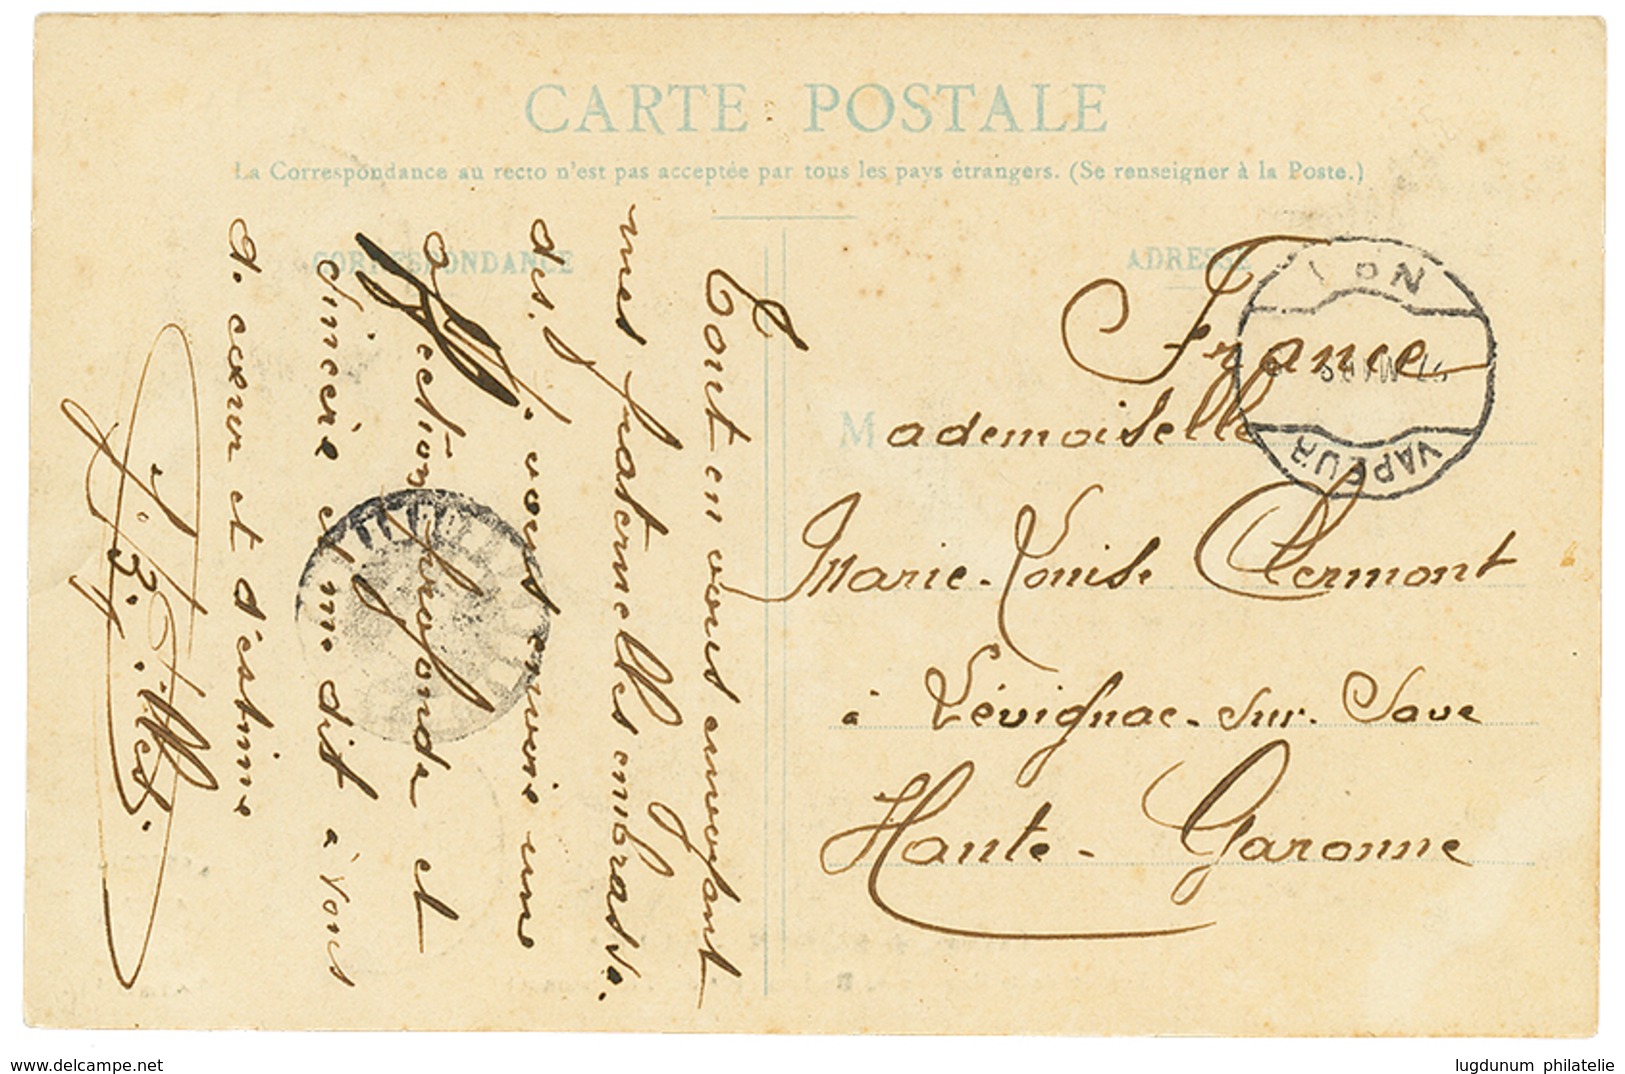 CARTE POSTALE
La Correspondance au recto n'est pas acceptée par tous les pays étrangers. (Se renseigner à la Poste.)
CORRESPONDANCE
Tout en vous envoyant
mes fraternelles embrasse.
des. Je vous envoie une
affection profonde et
sincère et me dis à vous
de cœur et d'estime
ADRESSE
France
Mademoiselle
Marie-Louise Clermont
à Lévignac-sur-Save
Haute-Garonne
VAPEUR
www.delcampe.net
lugdunum philatelie